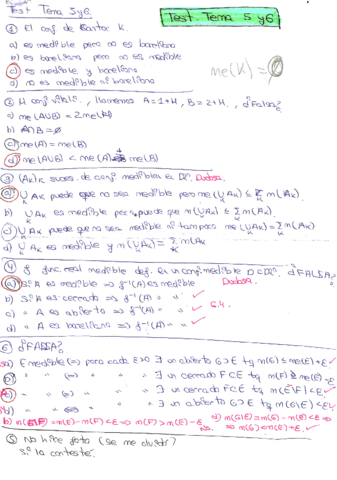 Test Tema 5 y 6
Test. Tema 5 y 6
① El conj de Cantor K.
a) es medible pero no es boreliano
b) es boreliano pero no es medible
c) es medible y boreliano
d) no es medible ni boreliano
me(K) = 0
② H conj vitali. , llamemos A=1+H, B=2+H, ¿Falsa?
a) me(A∪B) = 2me(H)
b) A∩B = ∅
c) me(A) = me(B)
d) me(A∪B) < me(A) + me(B)
③ (Ak)k suces. de conj medibles Dudosa.
a) ⋃k Ak puede que no sea medible pero me(⋃Ak) ≤ Σk m(Ak).
b) ⋃k Ak es medible pero puede que m(⋃Ak) ≤ Σk m(Ak).
c) ⋃k Ak puede que no sea medible ni tampoco me(⋃k Ak) = Σk m(Ak)
d) ⋃k Ak es medible y m(⋃k Ak) = Σk m(Ak
④ f func real medible def. en un conj medible ¿FALSA?
a) Si A es medible ⇒ f⁻¹(A) es medible Dudosa.
b) Si A es cerrado ⇒ f⁻¹(A) = " "
c) " A es abierto ⇒ f⁻¹(A) " " 6.4.
d) " A es boreliano ⇒ f⁻¹(A) = " "
⑥ ¿FALSA?
a) E medible (⇒) para cada ε>0 ∃ un abierto G⊃E tq m(G) ≤ me(E)+ε
" " (⇒) " " " ∃ un cerrado F⊂E tq m(F) ≥ me(E)-ε
" " (⇒) " " " ∃ un cerrado F⊂E tq m(E\F) < ε
" " (⇒) " " " ∃ un abierto G⊃E tq m(G\E) < ε
b) m(E\F) = m(E) - m(F) < ε ⇒ m(F) > m(E) - ε No. a) m(G\E) = m(G) - m(E) < ε ⇒
⇒ m(G) < m(E) + ε
⑤ No hice foto (se me olvidó)
Si la contesté.